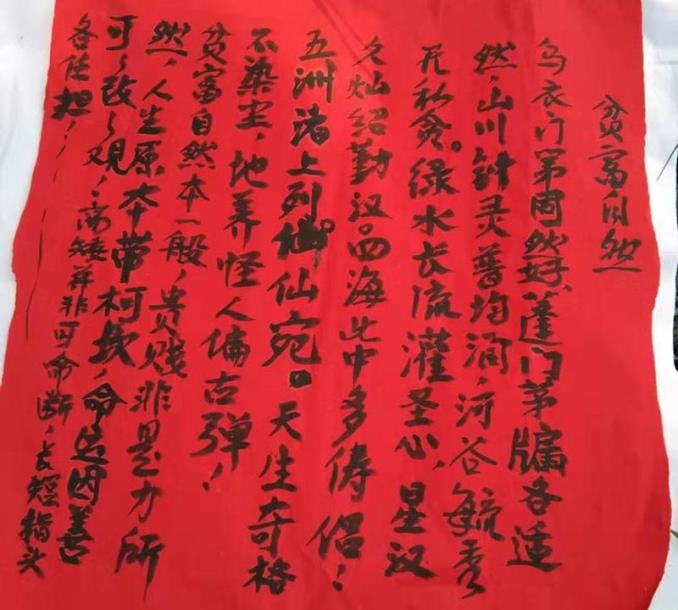 贫富自然
乌衣门第固然好，蓬门茅牖各适
然，山川针灵普均润，河谷毓秀
无私贪。绿水长流灌圣心，星汉
久灿绍勤汉。四海此中多俦侣！
五洲渚上列仙宛。天生奇格
不染尘，地养怪人偏古弹！
贫富自然本一般，贵贱非是力所
然，人生原本带柯，命运因善
可以改观，高矮并非可命断，长短指头
各任担！